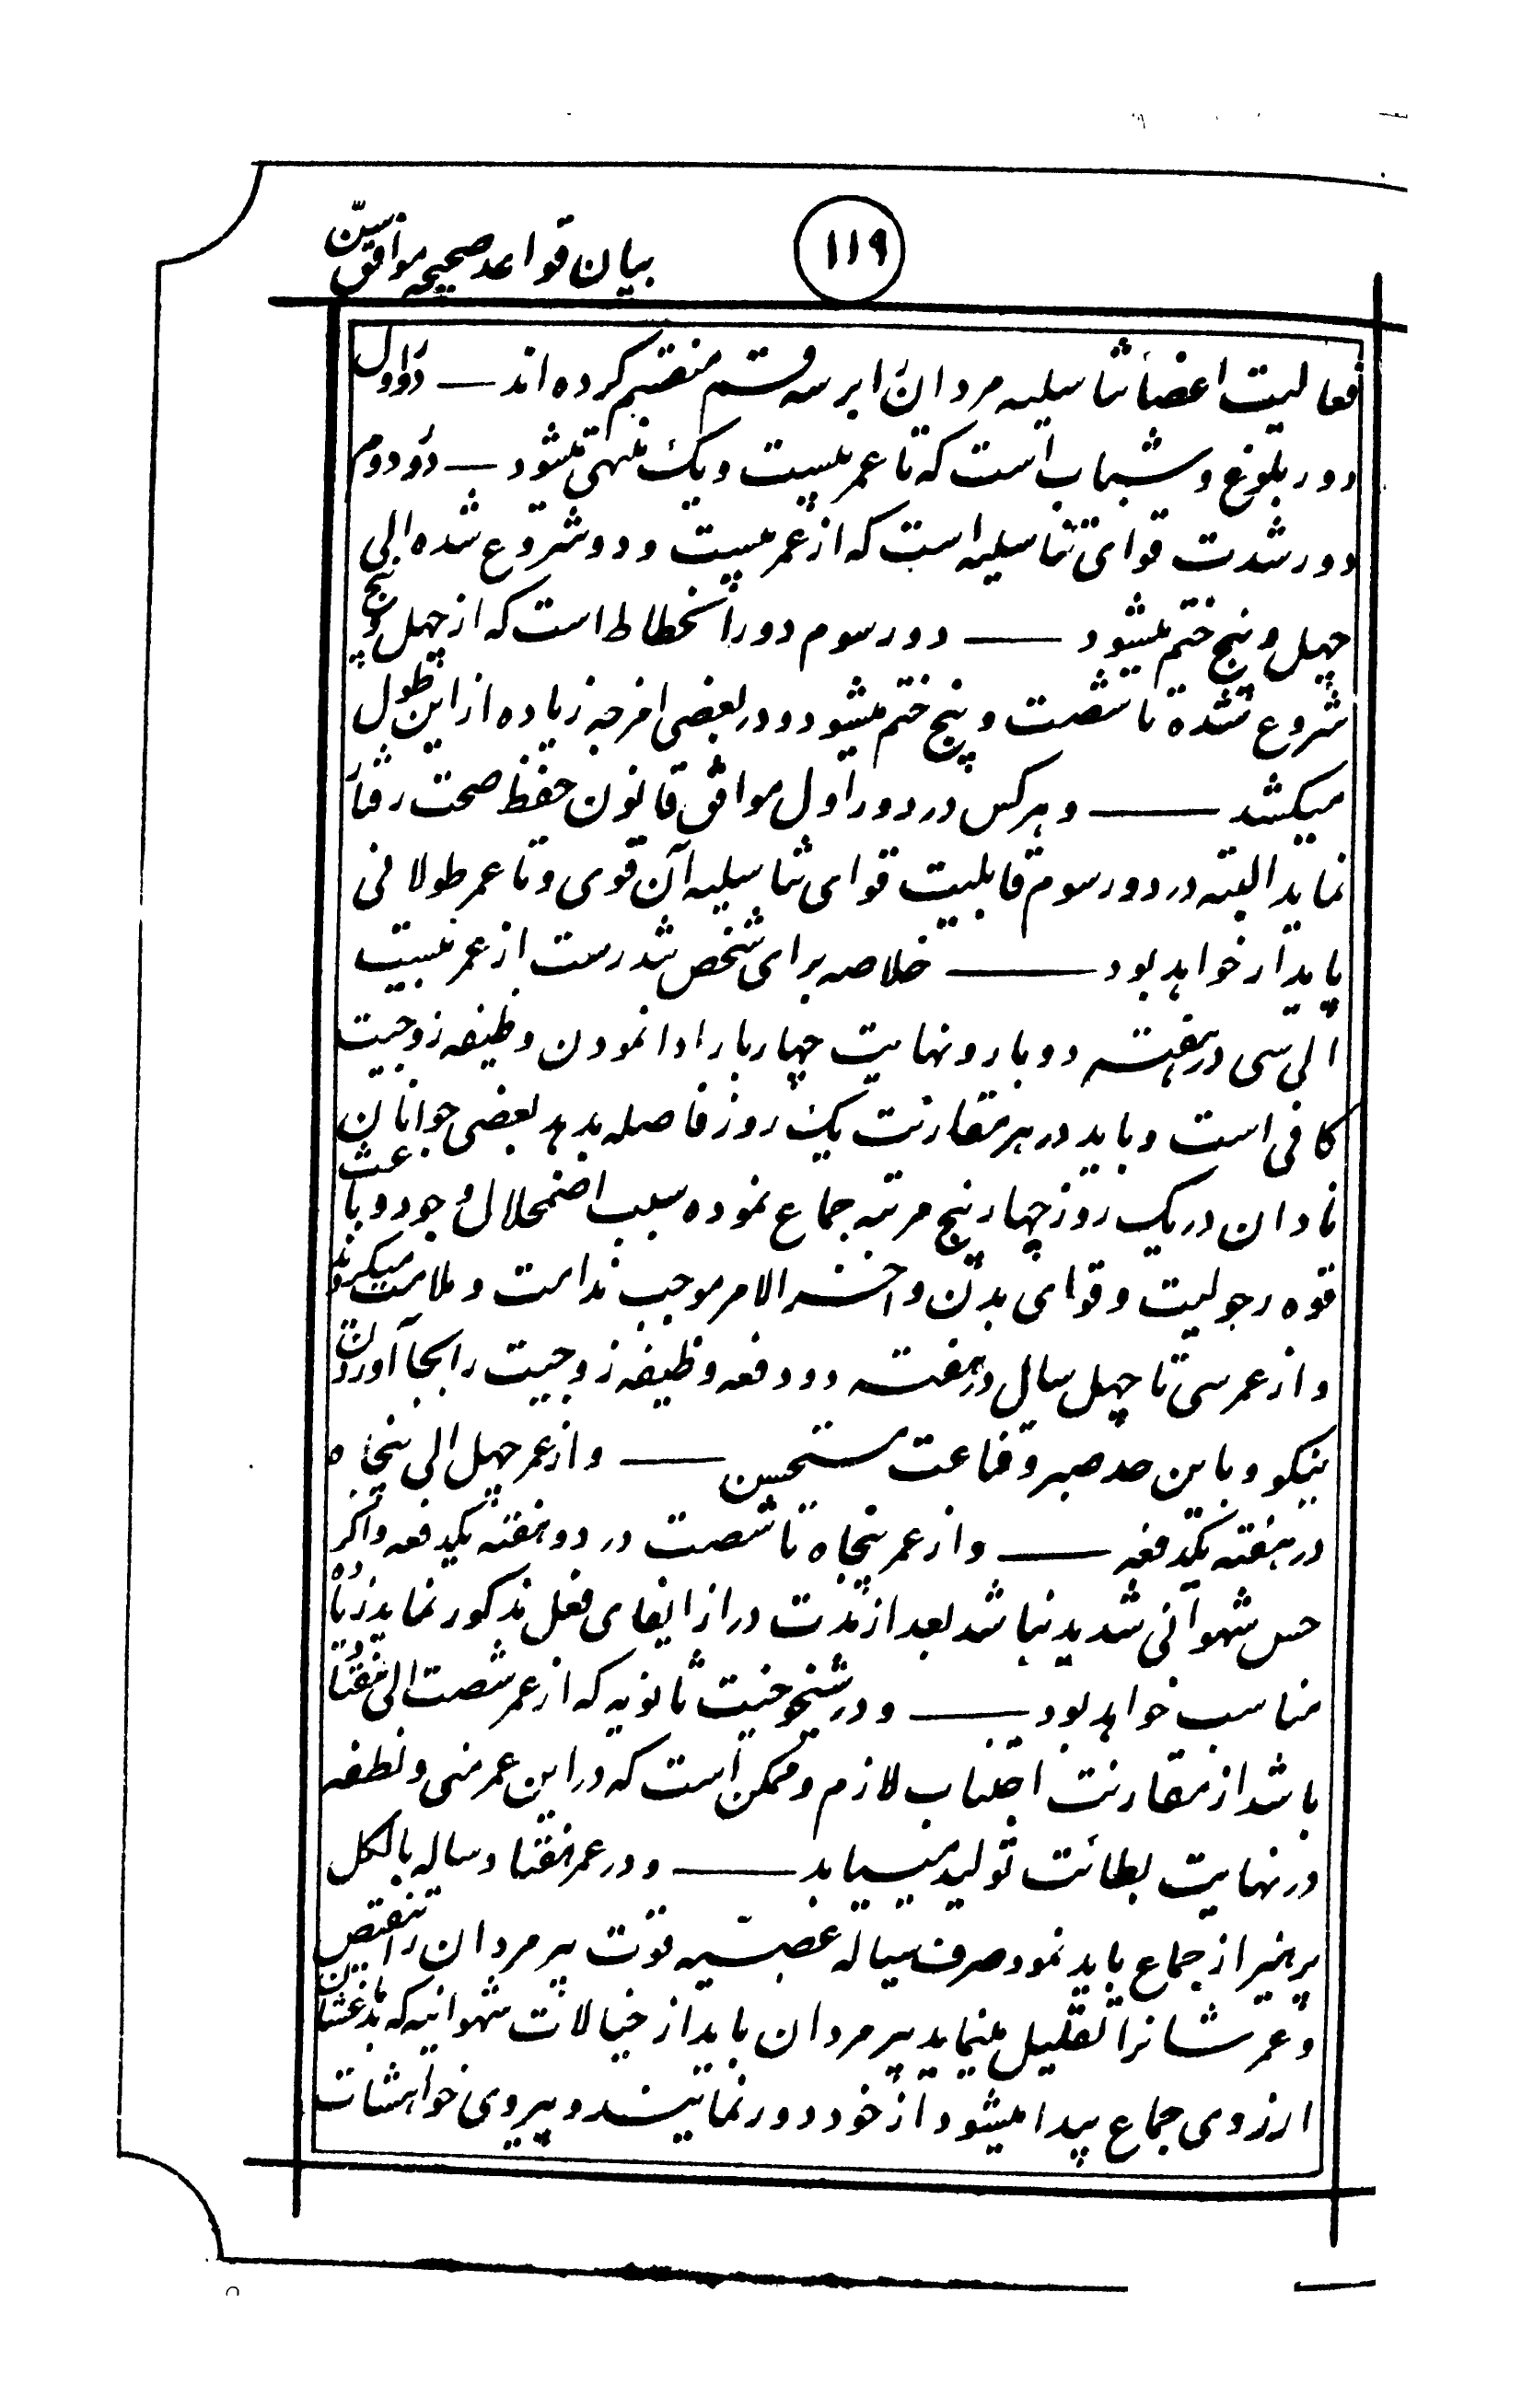 ۱۱۹
بیان قواعد صحیحه موافق سِنّ
فعالیت اعضأ تناسلیه مردان را بر سه قسم منقسم کرده اند — دور اول
دور بلوغ و شباب است که تا عمر بیست و یک منتهی میشود — دور دوم
دور شدت قوای تناسلیه است که از عمر بیست و دو شروع شده الی
چهل و پنج ختم میشود — دور سوم دور انحطاط است که از چهل و پنج
شروع شده تا شصت و پنج ختم میشود و در بعضی امزجه زیاده از این طول
میکشد — و هر کس در دور اول موافق قانون حفظ صحت رفتار
نماید البته در دور سوم قابلیت قوای تناسلیه آن قوی و تا عمر طولانی
پایدار خواهد بود — خلاصه برای شخص تندرست از عمر بیست
الی سی در هفته دو بار و نهایت چهار بار ادا نمودن وظیفه زوجیت
کافی است و باید در هر مقارنت یک روز فاصله بدهد بعضی جوانان
نادان در یک روز چهار پنج مرتبه جماع نموده سبب اضمحلال وجود و باعث
قوه رجولیت و قوای بدن و آخر الامر موجب ندامت و ملامت میگردند
و از عمر سی تا چهل سالی در هفته دو دفعه وظیفه زوجیت را بجا آوردن
نیکو و باین حد صبر و قناعت مستحسن — و از عمر چهل الی پنجاه
در هفته یکدفعه — و از عمر پنجاه تا شصت در دو هفته یکدفعه و اگر
حس شهوانی شدید نباشد بعد از مدت دراز ایفای فعل مذکور نماید زیاده
مناسب خواهد بود — و در شیخوخیت ثانویه که از عمر شصت الی هفتاد
باشد از مقارنت اجتناب لازم و ممکن است که در این عمر منی و نطفه
در نهایت بطائت تولید مییابد — و در عمر هفتاد ساله بالکل
پرهیز از جماع باید نمود صرف سیاله عصبیه قوت پیر مردان را تنقیص
و عمر شانرا تقلیل مینماید پیر مردان باید از خیالات شهوانیه که
ارزوی جماع پیدا میشود از خود دور نمایند و پیروی خواهشات